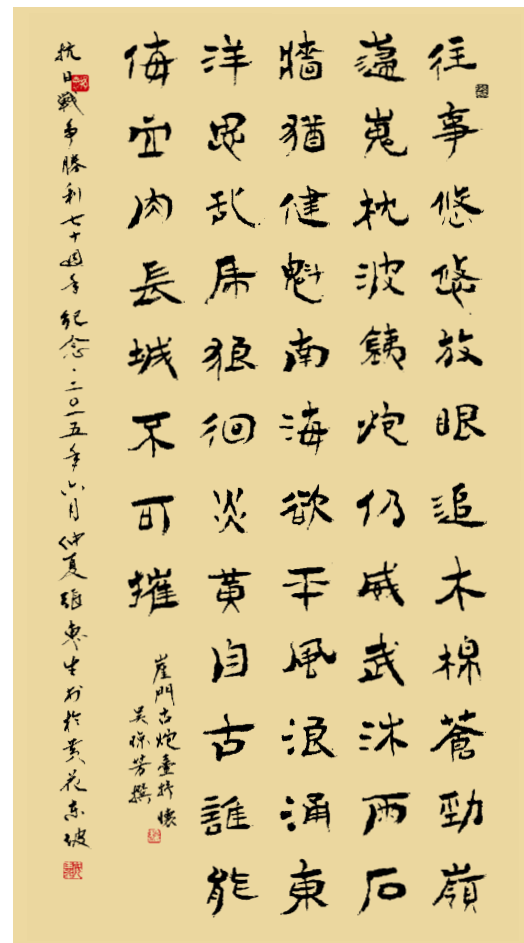 往事悠悠放眼追木棉蒼勁嶺
嵬枕波銕炮仍威武沐雨石
牆猶健魁南海欲平風浪涌東
洋思乱虎狼徊炎黃自古誰能
侮血肉長城不可摧
崖門古炮臺抒懷
吳琼芳撰
抗日戰爭勝利七十週年紀念·二〇一五年六月仲夏張惠生於黃花东坡